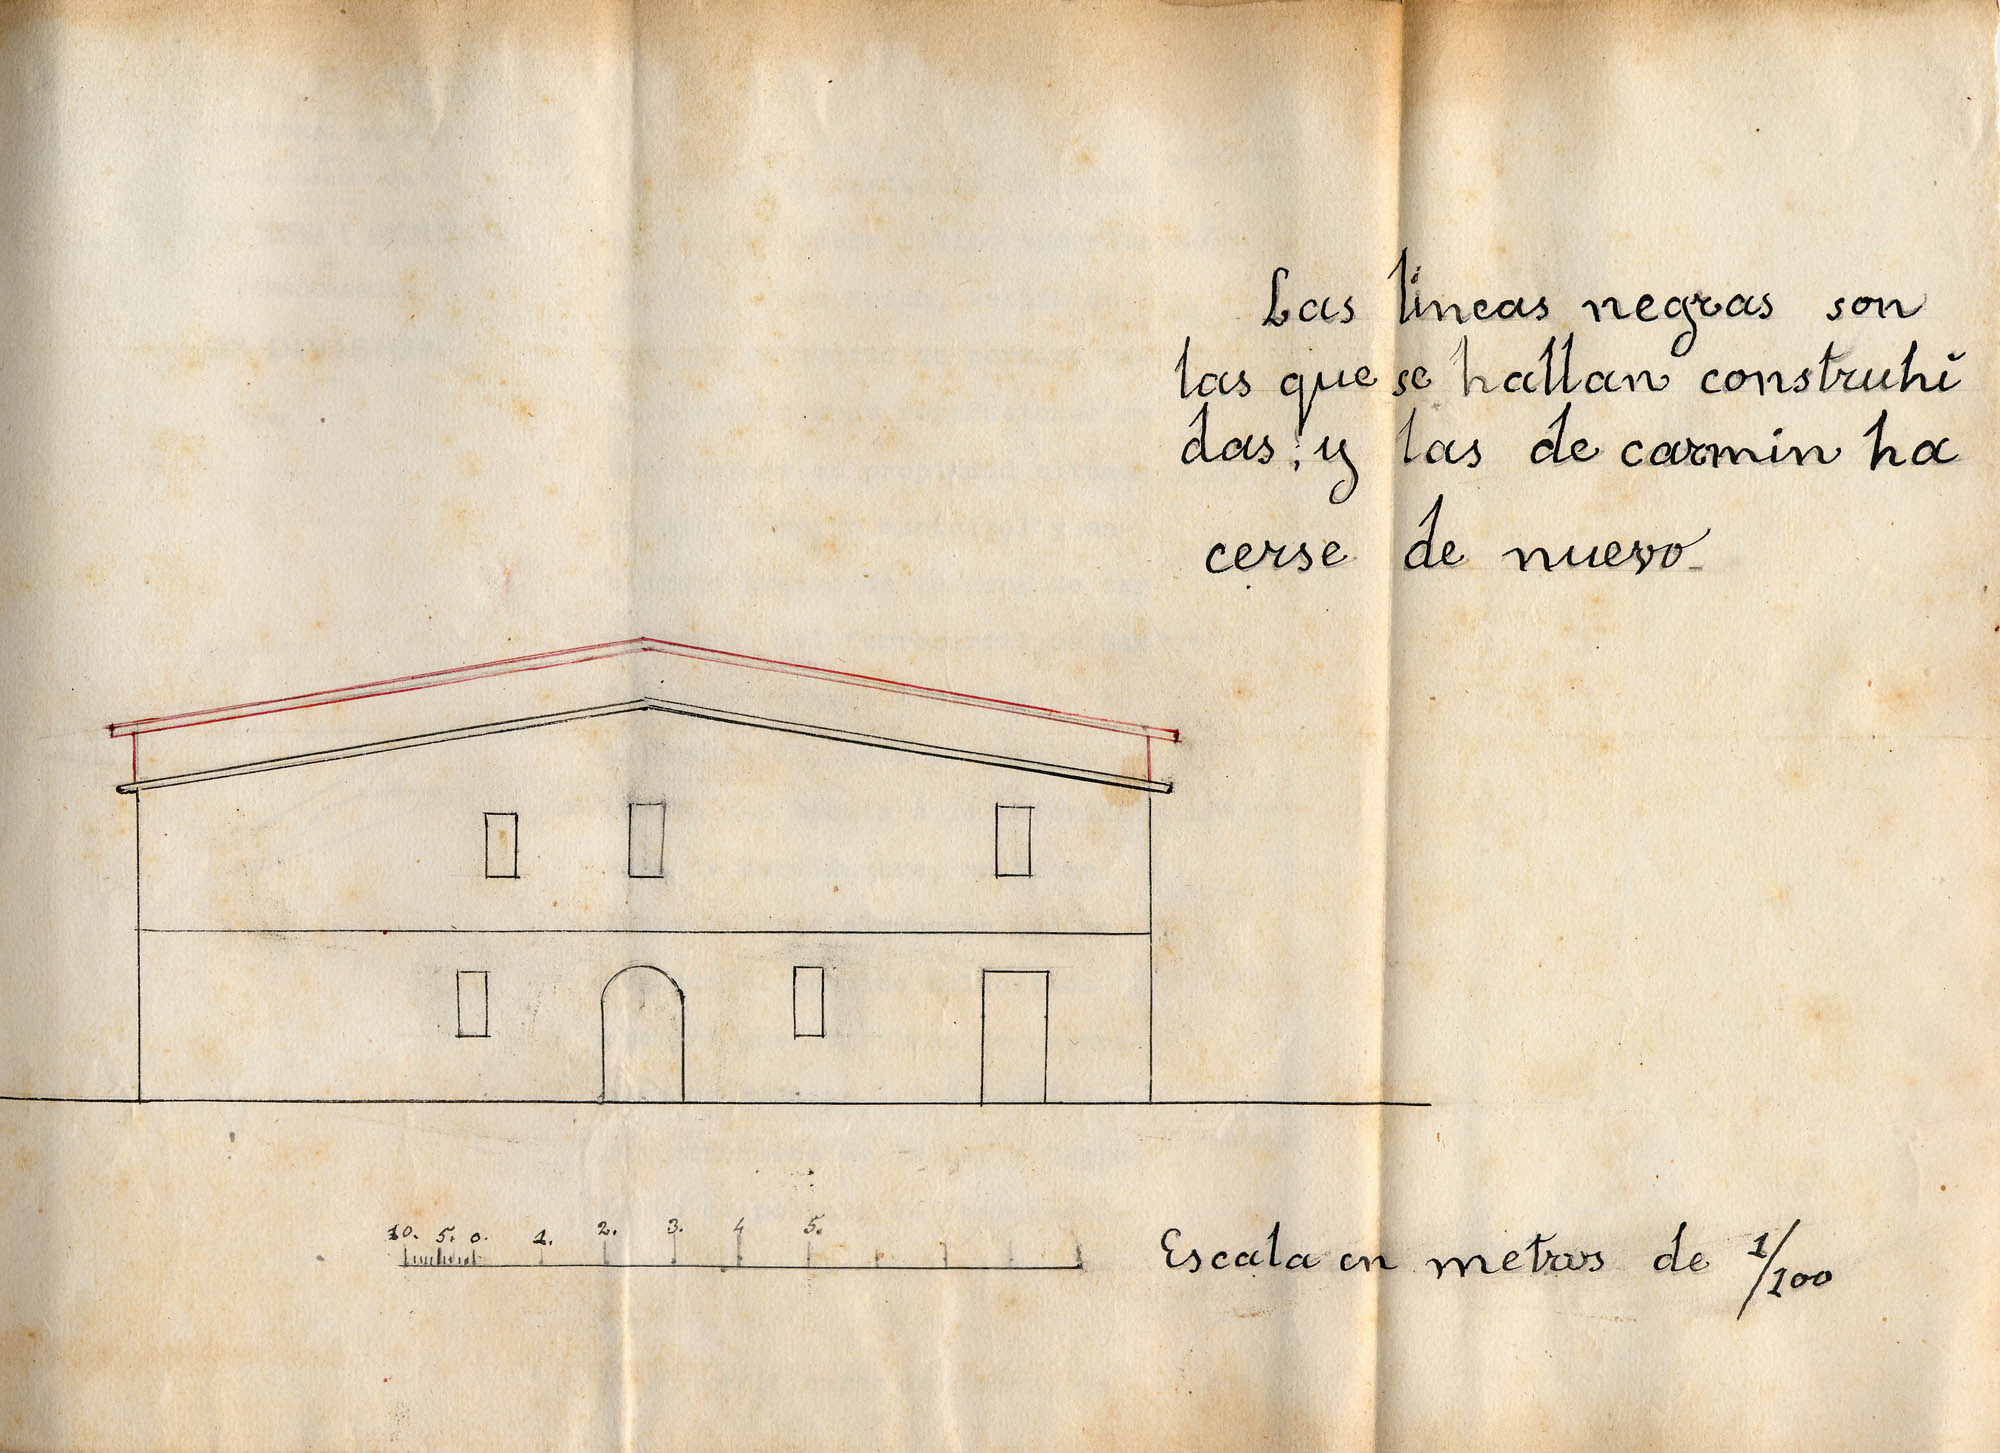 Las lineas negras son
las que se hallan construhi
das; y las de carmin ha
cerse de nuevo.
10. 5. 0. 1. 2. 3. 4 5.
Escala en metros de 1/100